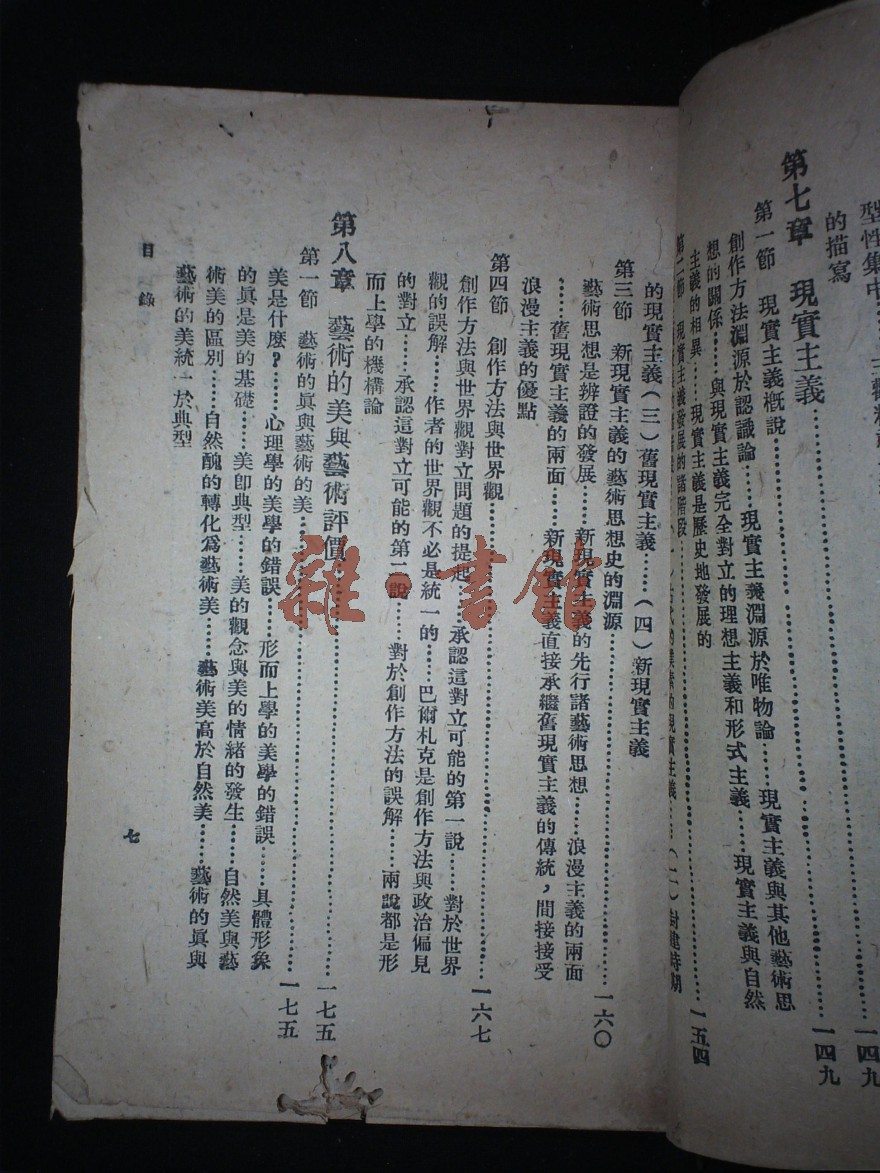 的描寫
第七章 現實主義……一四九
第一節 現實主義槪說……一四九
創作方法淵源於認識論……現實主義淵源於唯物論……現實主義與其他藝術思
想的關係……與現實主義完全對立的理想主義和形式主義……現實主義與自然
主義的相異……現實主義是歷史地發展的
第二節 現實主義發展的諸階段……一五四
的現實主義(三)舊現實主義……(四)新現實主義
第三節 新現實主義的藝術思想史的淵源……一六〇
藝術思想是辨證的發展……新現實主義的先行諸藝術思想……浪漫主義的兩面
……舊現實主義的兩面……新現實主義直接承繼舊現實主義的傳統,間接接受
浪漫主義的優點
第四節 創作方法與世界觀……一六七
創作方法與世界觀對立問題的提起……承認這對立可能的第一說……對於世界
觀的誤解……作者的世界觀不必是統一的……巴爾札克是創作方法與政治偏見
的對立……承認這對立可能的第二說……對於創作方法的誤解……兩說都是形
而上學的機構論
第八章 藝術的美與藝術評價……一七五
第一節 藝術的眞與藝術的美……一七五
美是什麽?……心理學的美學的錯誤……形而上學的美學的錯誤……具體形象
的眞是美的基礎……美卽典型……美的觀念與美的情緒的發生……自然美與藝
術美的區別……自然醜的轉化爲藝術美……藝術美高於自然美……藝術的眞與
藝術的美統一於典型
目錄
七
雜·書館